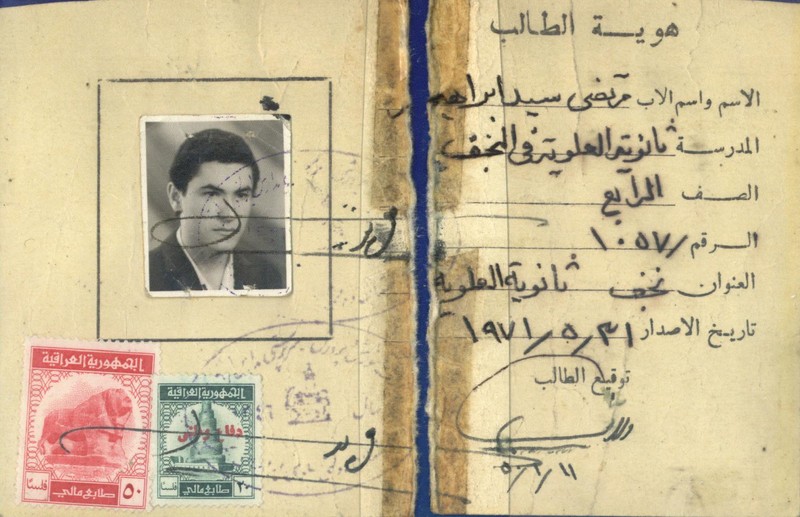 هوية الطالب
الاسم واسم الاب مرتضى سيد ابراهيم
المدرسة ثانوية العلوية في النجف
الصف الرابع
الرقم /١٠٥٧
العنوان نجف ثانوية العلوية
تاريخ الاصدار ١٩٧١/٥/٣١
توقيع الطالب
الجمهورية العراقية
٥٠ طابع مالي فلسًا
الجمهورية العراقية
طابع مالي